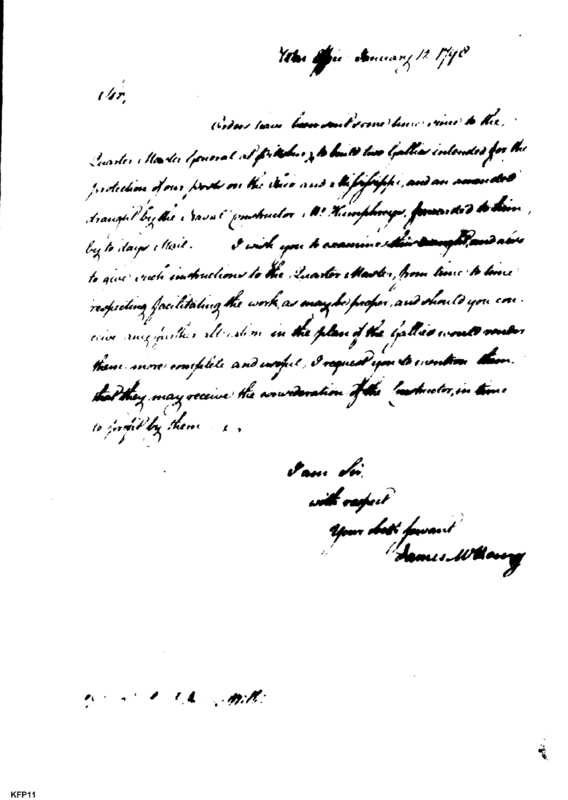 War Office January 12 1798
Sir,
Orders have been sent some time since to the
Quarter Master General at Pittsburg, to build two Gallies intended for the
protection of our posts on the Ohio and Mississippi, and an amended
draught by the Naval Constructor Mr. Humphreys, forwarded to him
by to days Mail. I wish you to examine this draught, and also
to give such instructions to the Quarter Master, from time to time
respecting facilitating the work, as may be proper, and should you con-
ceive any further alteration in the plan of the Gallies would render
them more complete and useful, I request you to mention them
that they may receive the consideration of the Constructor, in time
to profit by them
I am Sir,
with respect
Your obdt. servant
James McHenry
KFP11